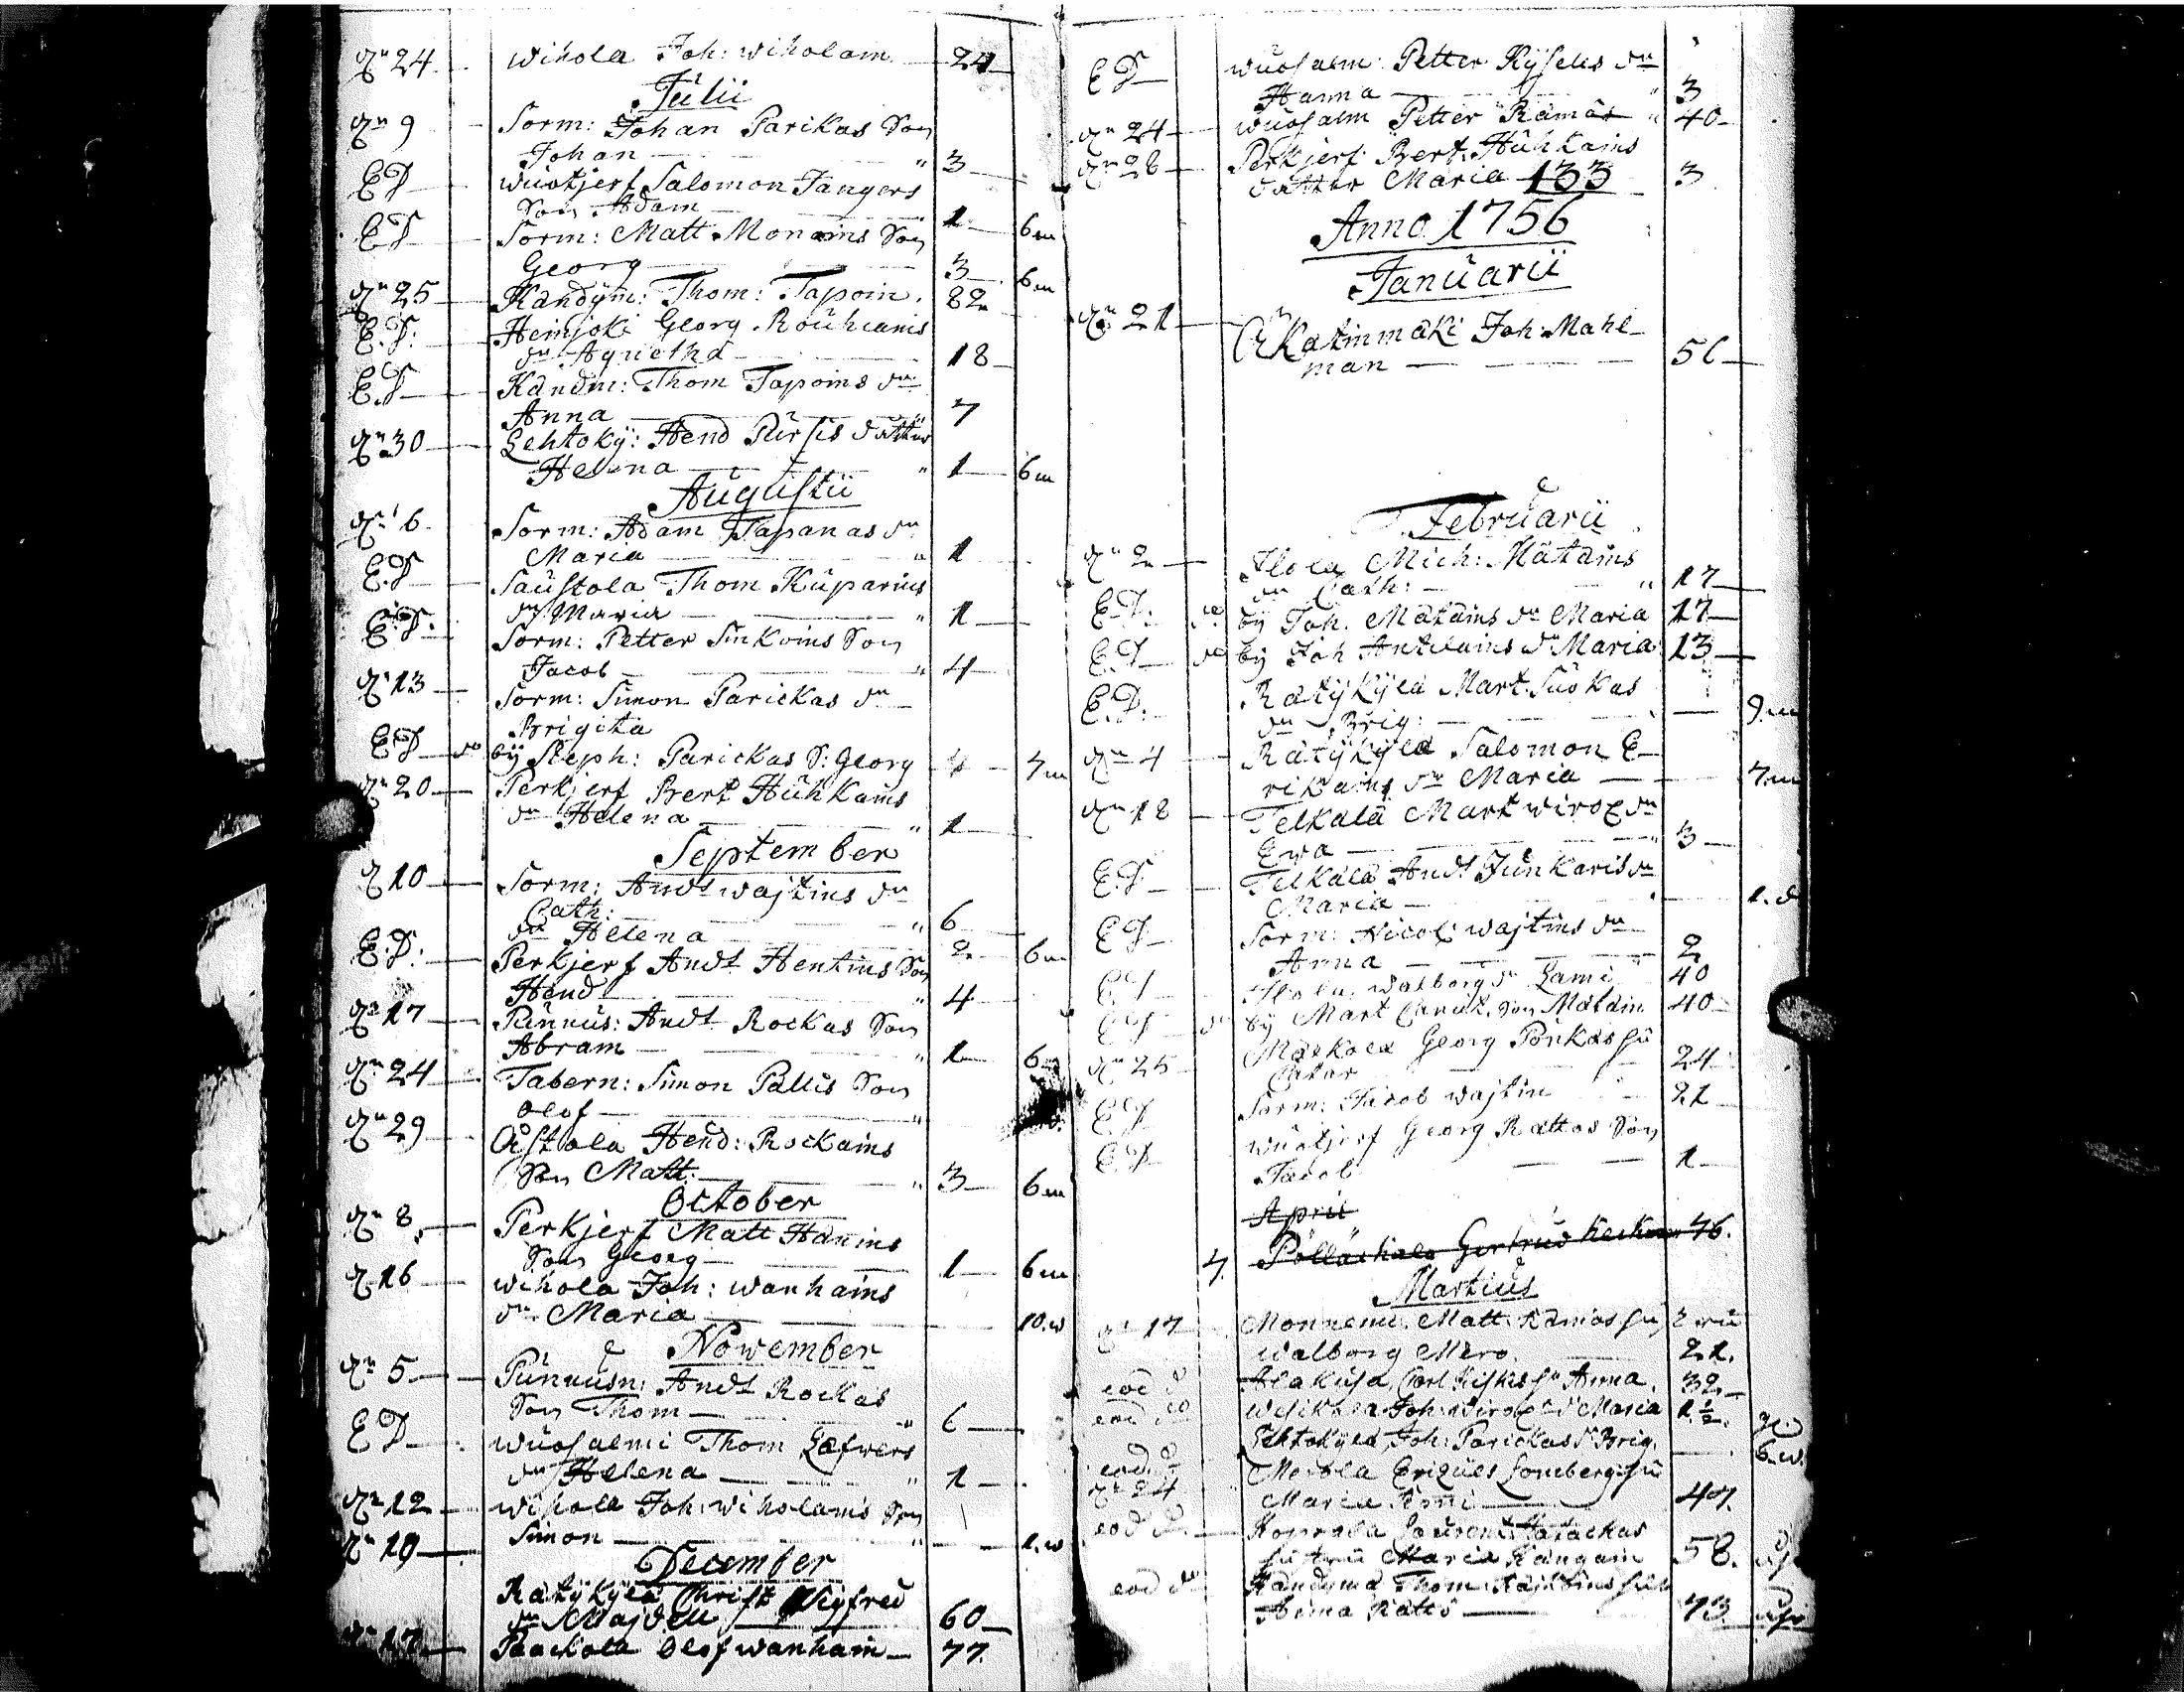 24 Wihola Joh: Wiholain 24
Julii
9 Sorm: Johan Parikas Son
Johan " 3
E D Wuotjerf Salomon Tangers
Son Adam 1 6 m
E D Sorm: Matt Monoins Son
Georg 3 6 m
25 Kandÿm: Thom: Tapoin. 82
E. D. Heinjoki Georg Rouhiains
dr Agnetha 18
E. D Kandm: Thom Tapoins dr
Anna 7
30 Lehtokÿ: Hend Pursis dotter
Helena " 1 6 m
Augustii
6 Sorm: Adam Tapanas dr
Maria " 1
E. D Saustola Thom Kuparins
dr Maria " 1
E. D. Sorm: Petter Sinkoins Son
Jacob " 4
13 Sorm: Simon Parickas dr
Brigita
E D do bÿ Steph: Parickas S: Georg 4 7 m
20 Perkjerf Bert Huhkains
dr Helena " 1
September
10 Sorm: Andt Wajtins dr
Cath: " 6
E. D. dr Helena 2 6 m
Perkjerf Andt Hentins Son
Hend " 4
17 Punnus: Andt Rockas Son
Abram " 1 6 m
24 Tabern: Simon Pallis Son
Olof "
29 Oistola Hend: Rockains
Son Matt: " 3 6 m
October
8 Perkjerf Matt Hanins
Son Georg 1 6 m
16 Wihola Joh: Wanhains
dr Maria 10. w
November
5 Punnusn: Andt Rockas
Son Thom " 6
E D Wuosalmi Thom Läfwers
dr Helena " 1
12 Wihola Joh: Wiholains Son
19 Simon " 1. w
December
Ratÿkÿlä Christ Sigfred
dr Majdell 60
17 Paackola Olof Wanhain 77.
E D Wuosalm: Petter Kÿselis dr
Hanna " 3
24 Wuosalm Petter Rämäs " 40
28 Perkjerf Bert. Huhkains
dotter Maria 133 3
Anno 1756
Januarii
21 Katinmäki Joh: Mahl-
man 56
Februarii
2 Ilola Mich: Mätäins
dr Cath: " 17
E. D. do bÿ Joh. Mätäins dr Maria 17
E. D do bÿ Joh Antilains dr Maria 13
E. D. Ratÿkÿlä Mart. Suokas
dr Brig: 9. m
4 Ratÿkÿlä Salomon E-
rikains dr Maria 7. m
18 Telkälä Mart Wirox dr
Ewa " 3
E. D Telkälä Andt Junkaris dr
Maria 1. d
E D Sorm: Nicol: Wajtins dr
Anna 2
E D Ilola. Walborg dr Lami 40
E D do bÿ Mart Son Mätäin 40
25 Mälkölä Georg Ponkas hu
Catar 24
E D Sorm: Jacob Wajtin 21
E D Wuotjerf Georg Rattos Son
Jacob 1
April
4. Pölläkälä Gertrud 46.
Martius
17 Monnemi Matt: Rämäs hu
Walborg Mero 21.
eod d Alakusa Carl Anna. 32
eod do Joh: Wirox dr Maria 1 1/2.
eod. d Lehtokÿlä Joh: Parickas dr Brig. 6. w.
24 Lomberg hu
Maria 47.
eod d.
Maria Kangain 58.
eod do Kandÿma Thom:
Anna Rättö 73